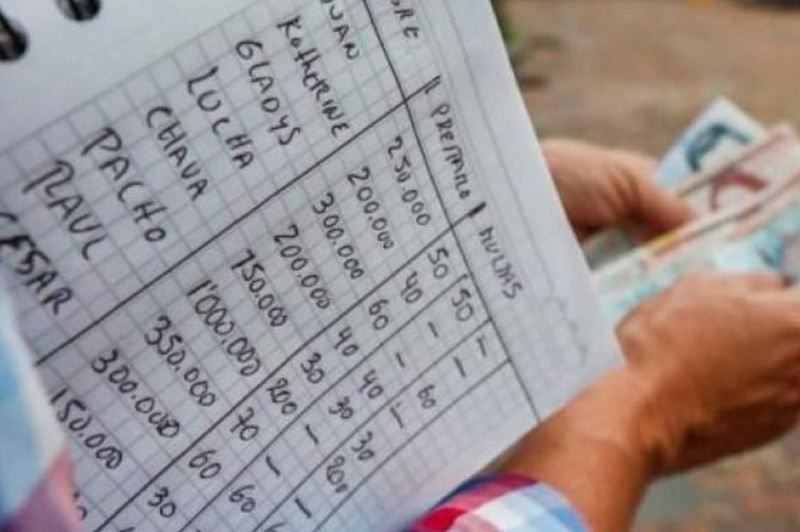 BRE PRESTAMO MULTAS
UAN 250.000 50 50 -
KATHERINE 200.000 40 - -
GLADYS 300.000 60 - 60
LUCHA 200.000 40 40 -
CHAVA 150.000 30 30 30
PACHO 1'000.000 200 - 200
RAUL 350.000 70 - -
CESAR 300.000 60 60
150.000 30